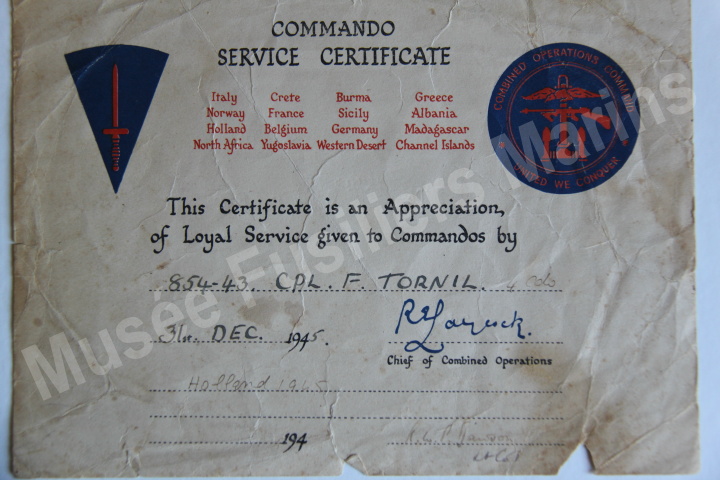 COMMANDO
SERVICE CERTIFICATE
Italy Crete Burma Greece
Norway France Sicily Albania
Holland Belgium Germany Madagascar
North Africa Yugoslavia Western Desert Channel Islands
COMBINED OPERATIONS COMMAND
UNITED WE CONQUER
This Certificate is an Appreciation,
of Loyal Service given to Commandos by
854-43. CPL. F. TORNIL. 4 Cdo
31st. DEC. 1945. R E Laycock.
Chief of Combined Operations
Holland 1945
194
Musée Fusiliers Marins